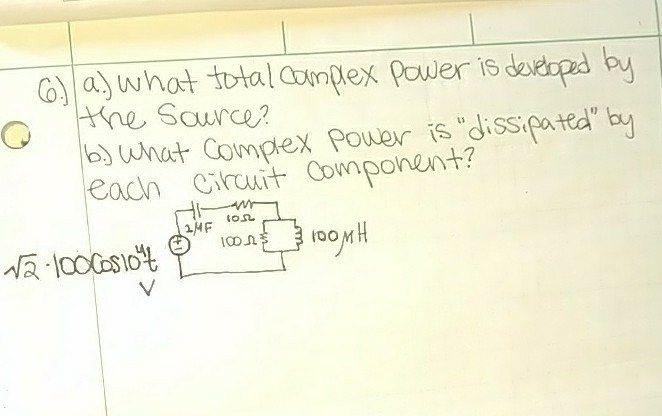 6.) a.) What total complex power is developed by
the Source?
b.) What Complex power is "dissipated" by
each circuit component?
10Ω
1μF
100Ω
100μH
√2·100Cos10⁴t
V